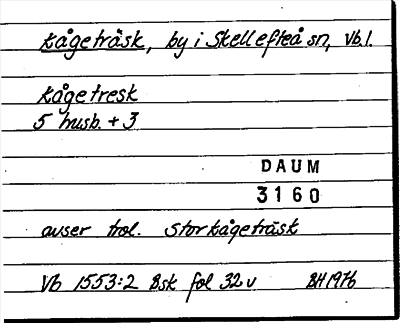 Kågeträsk, by i Skellefteå sn, Vb.l.
Kågetresk
5 husb. + 3
DAUM
3160
avser trol. Storkågeträsk
Vb 1553:2 Bsk fol 32v BH 1976